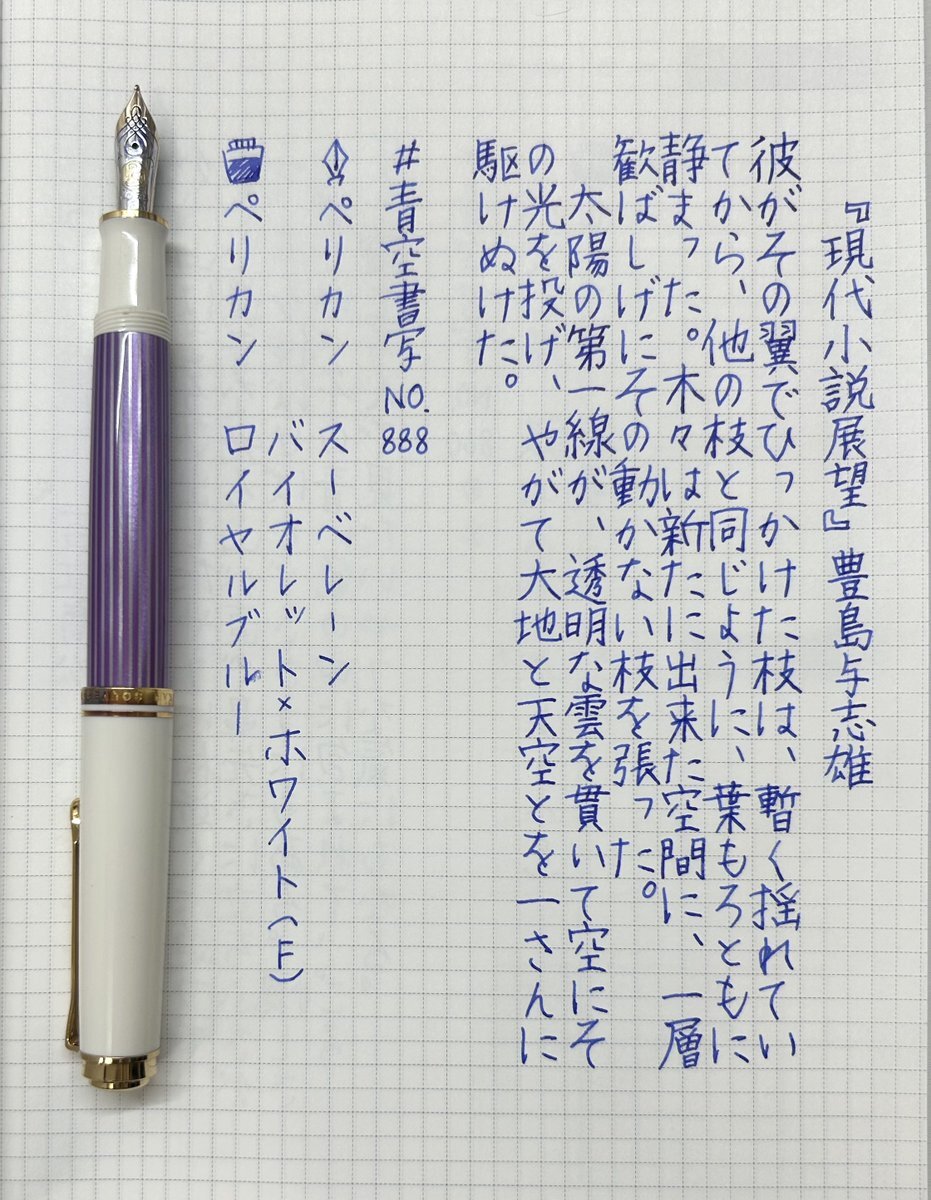 『現代小説展望』豊島与志雄
彼がその翼でひっかけた枝は、暫く揺れてい
てから、他の枝と同じように、葉もろともに
静まった。木々は新たに出来た空間に、一層
歓ばしげにその動かない枝を張った。
太陽の第一線が、透明な雲を貫いて空にそ
の光を投げ、やがて大地と天空とを一さんに
駆けぬけた。
#青空書写NO.888
ペリカン スーベレーン
バイオレット×ホワイト(F)
ペリカン ロイヤルブルー